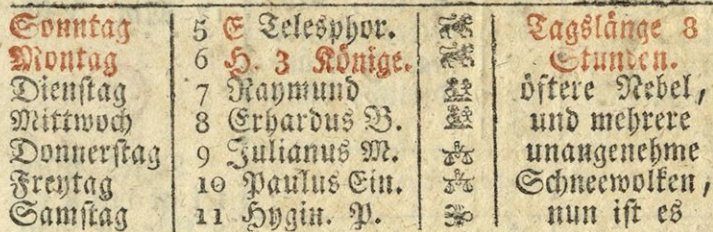 Sonntag 5 E Telesphor. Tagslänge 8
Montag 6 H. 3 Könige. Stunden.
Dienstag 7 Raymund öftere Nebel,
Mittwoch 8 Erhardus B. und mehrere
Donnerstag 9 Julianus M. unangenehme
Freytag 10 Paulus Ein. Schneewolken,
Samstag 11 Hygin. P. nun ist es